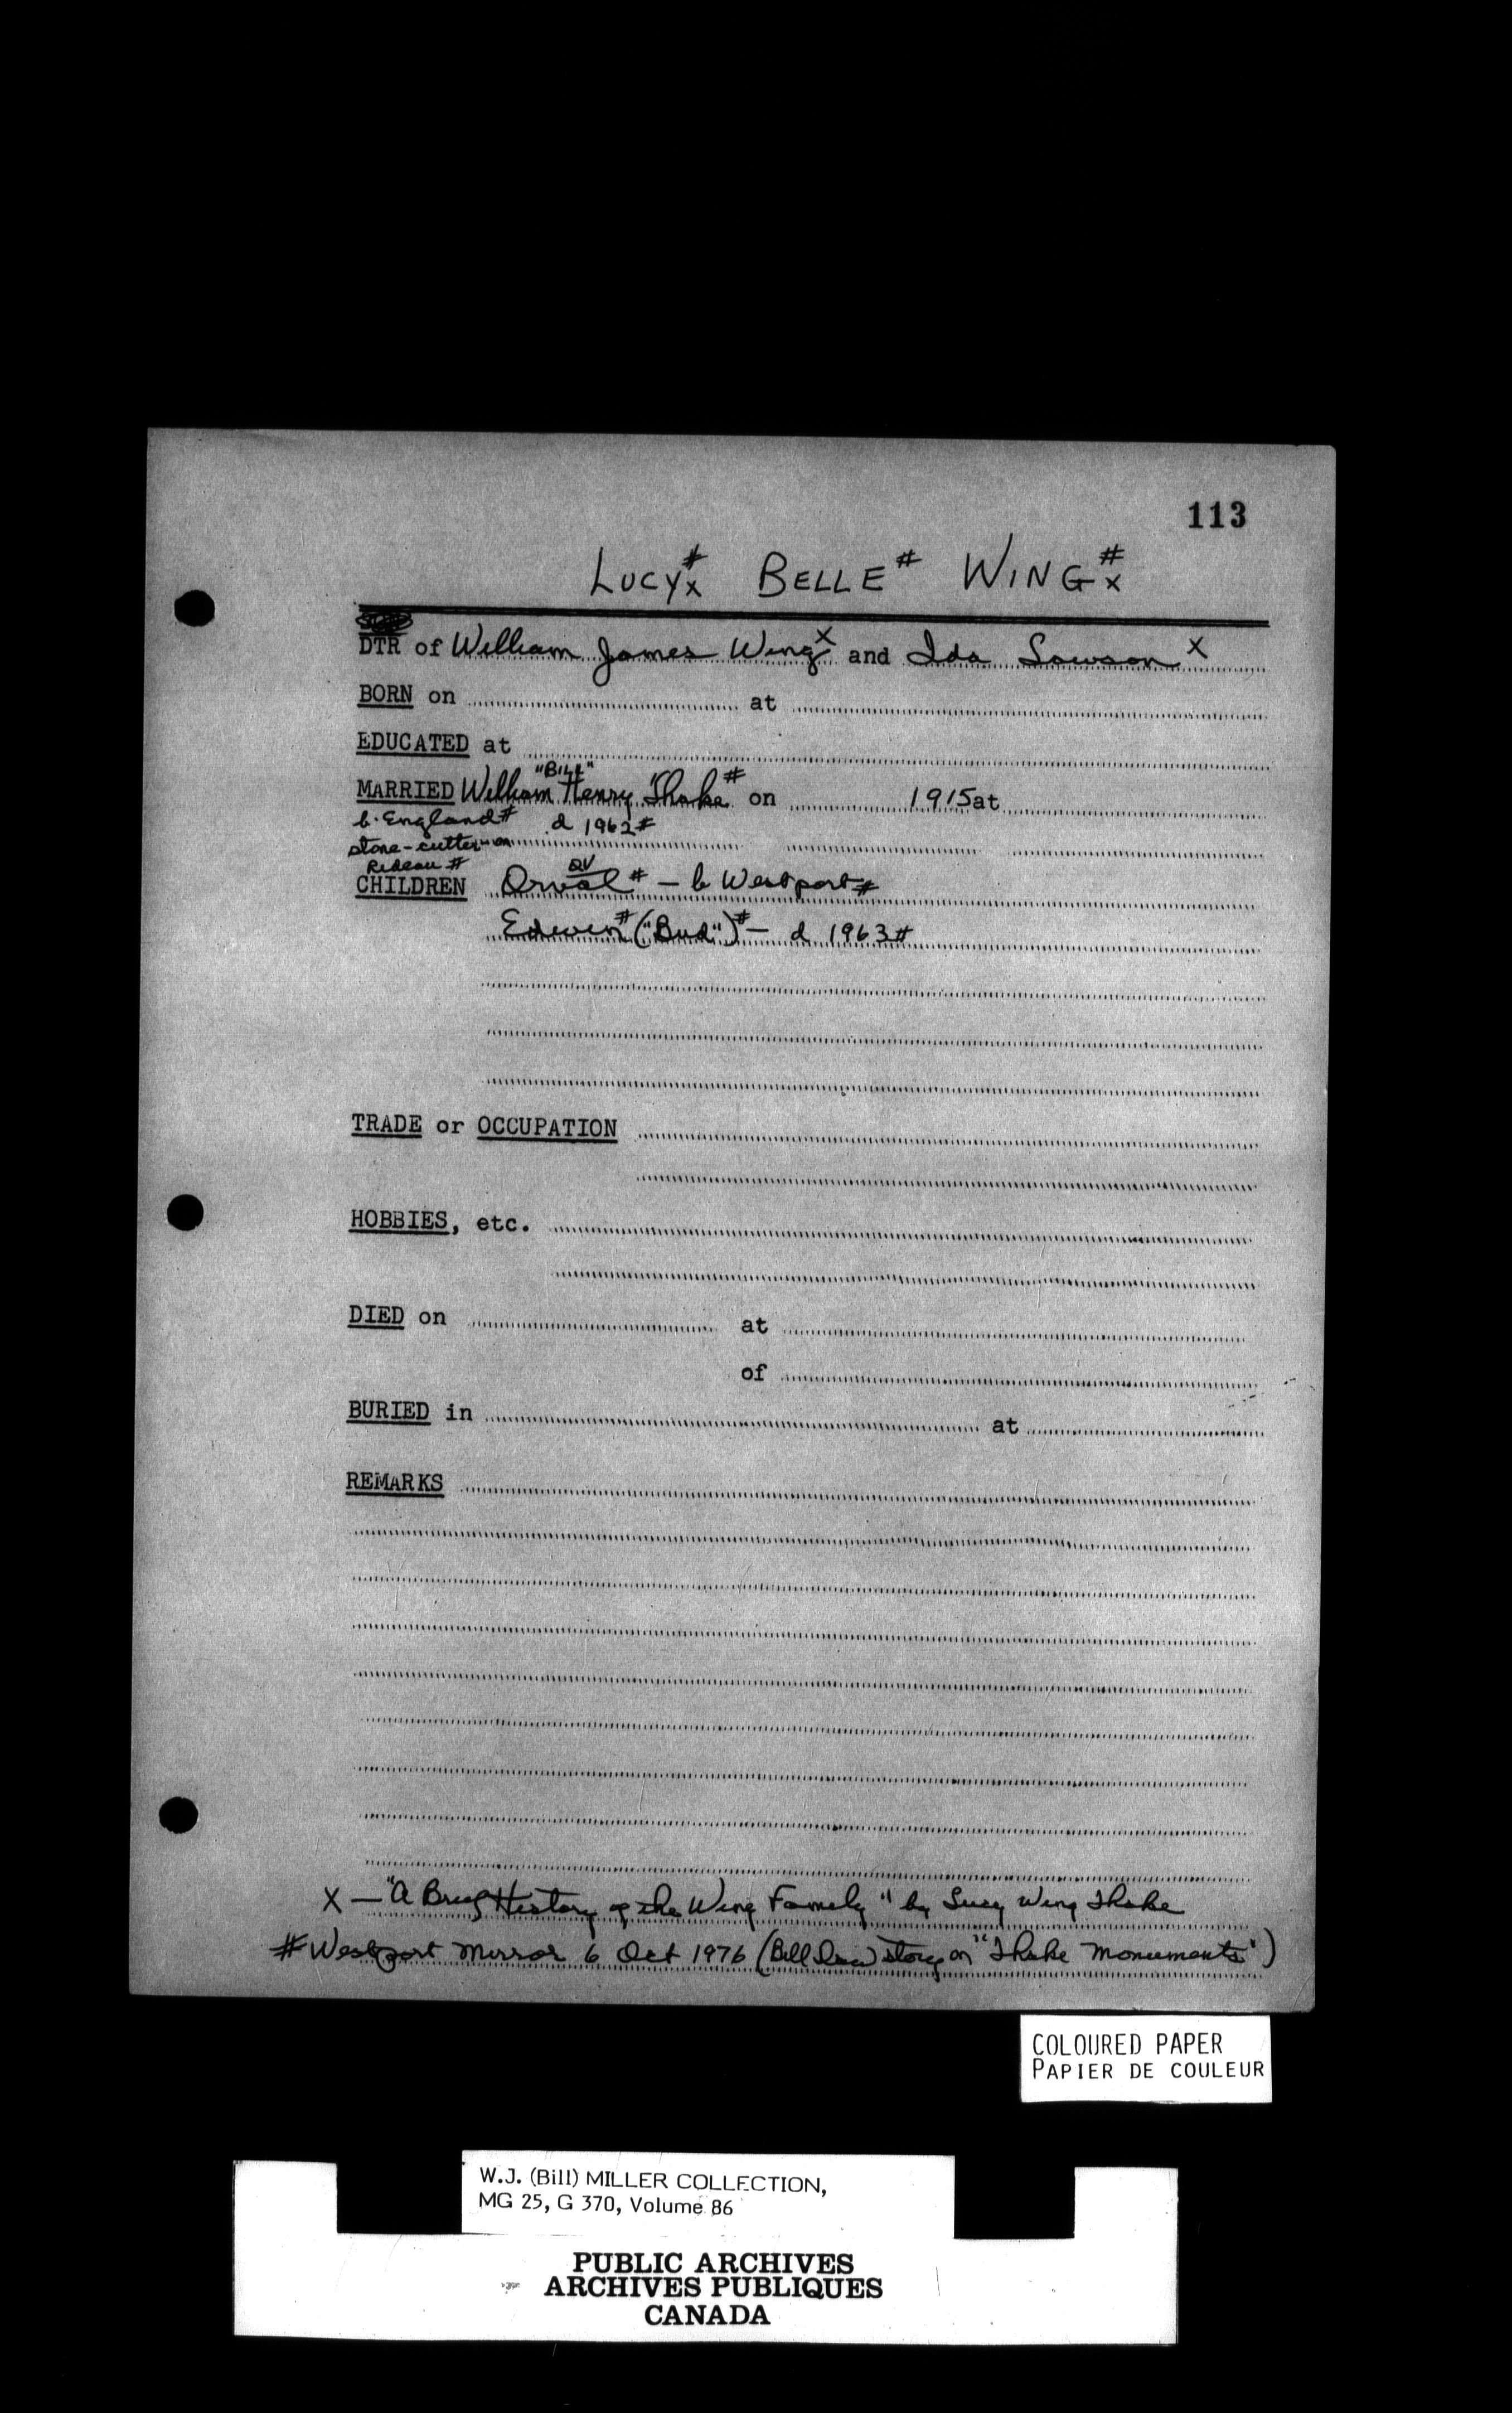 113
LUCY#x BELLE# WING#x
DTR of William James Wing x and Ida Lawson x
BORN on at
EDUCATED at
"BILL"
MARRIED William Henry Thake# on 1915 at
b. England# d 1962#
stone-cutter on
Rideau #
QV
CHILDREN Orval# - b Westport#
Edwin# ("Bud")# - d 1963#
TRADE or OCCUPATION
HOBBIES, etc.
DIED on at
of
BURIED in at
REMARKS
X - "A Brief History of the Wing Family" by Lucy Wing Thake
# Westport Mirror 6 Oct 1976 (Bill story on "Thake Monuments")
COLOURED PAPER
PAPIER DE COULEUR
W.J. (Bill) MILLER COLLECTION,
MG 25, G 370, Volume 86
PUBLIC ARCHIVES
ARCHIVES PUBLIQUES
CANADA